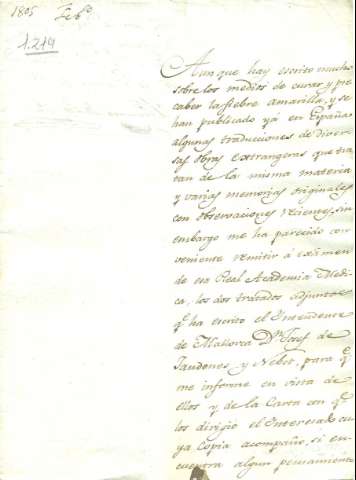 1805 Feb.º
1.219
Aunque hay escrito mucho
sobre los medios de curar y pre
caber la fiebre amarilla, y se
han publicado yá en España
algunas traducciones de diver
sas obras extrangeras que tra
tan de la misma materia
y varias memorias originales
con observaciones recientes, sin
embargo me ha parecido con
veniente remitir á exâmen
de esa Real Academia Medi
ca, los dos tratados adjuntos
q.e ha escrito el Intendente
de Mallorca D.n Josef de
Jaudenes y Nebot, para q.e
me informe en vista de
ellos y de la Carta con q.e
los dirigió el Interesado cu
ya Copia acompaño, si en
cuentra algun pensamiento